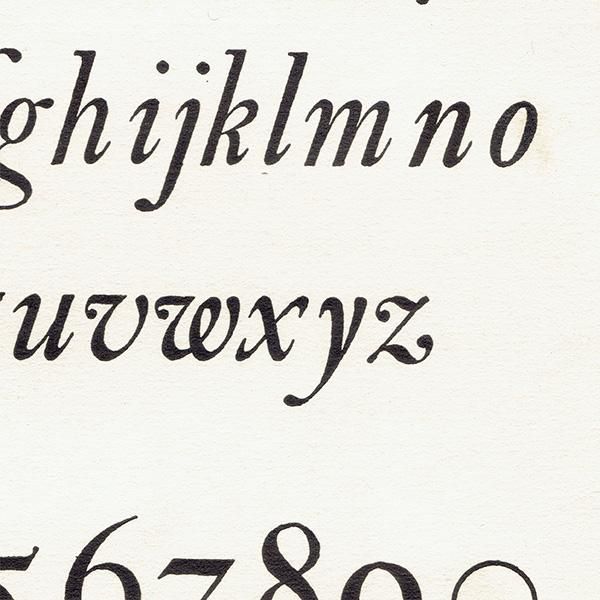 ghijklmno
uvwxyz
567890